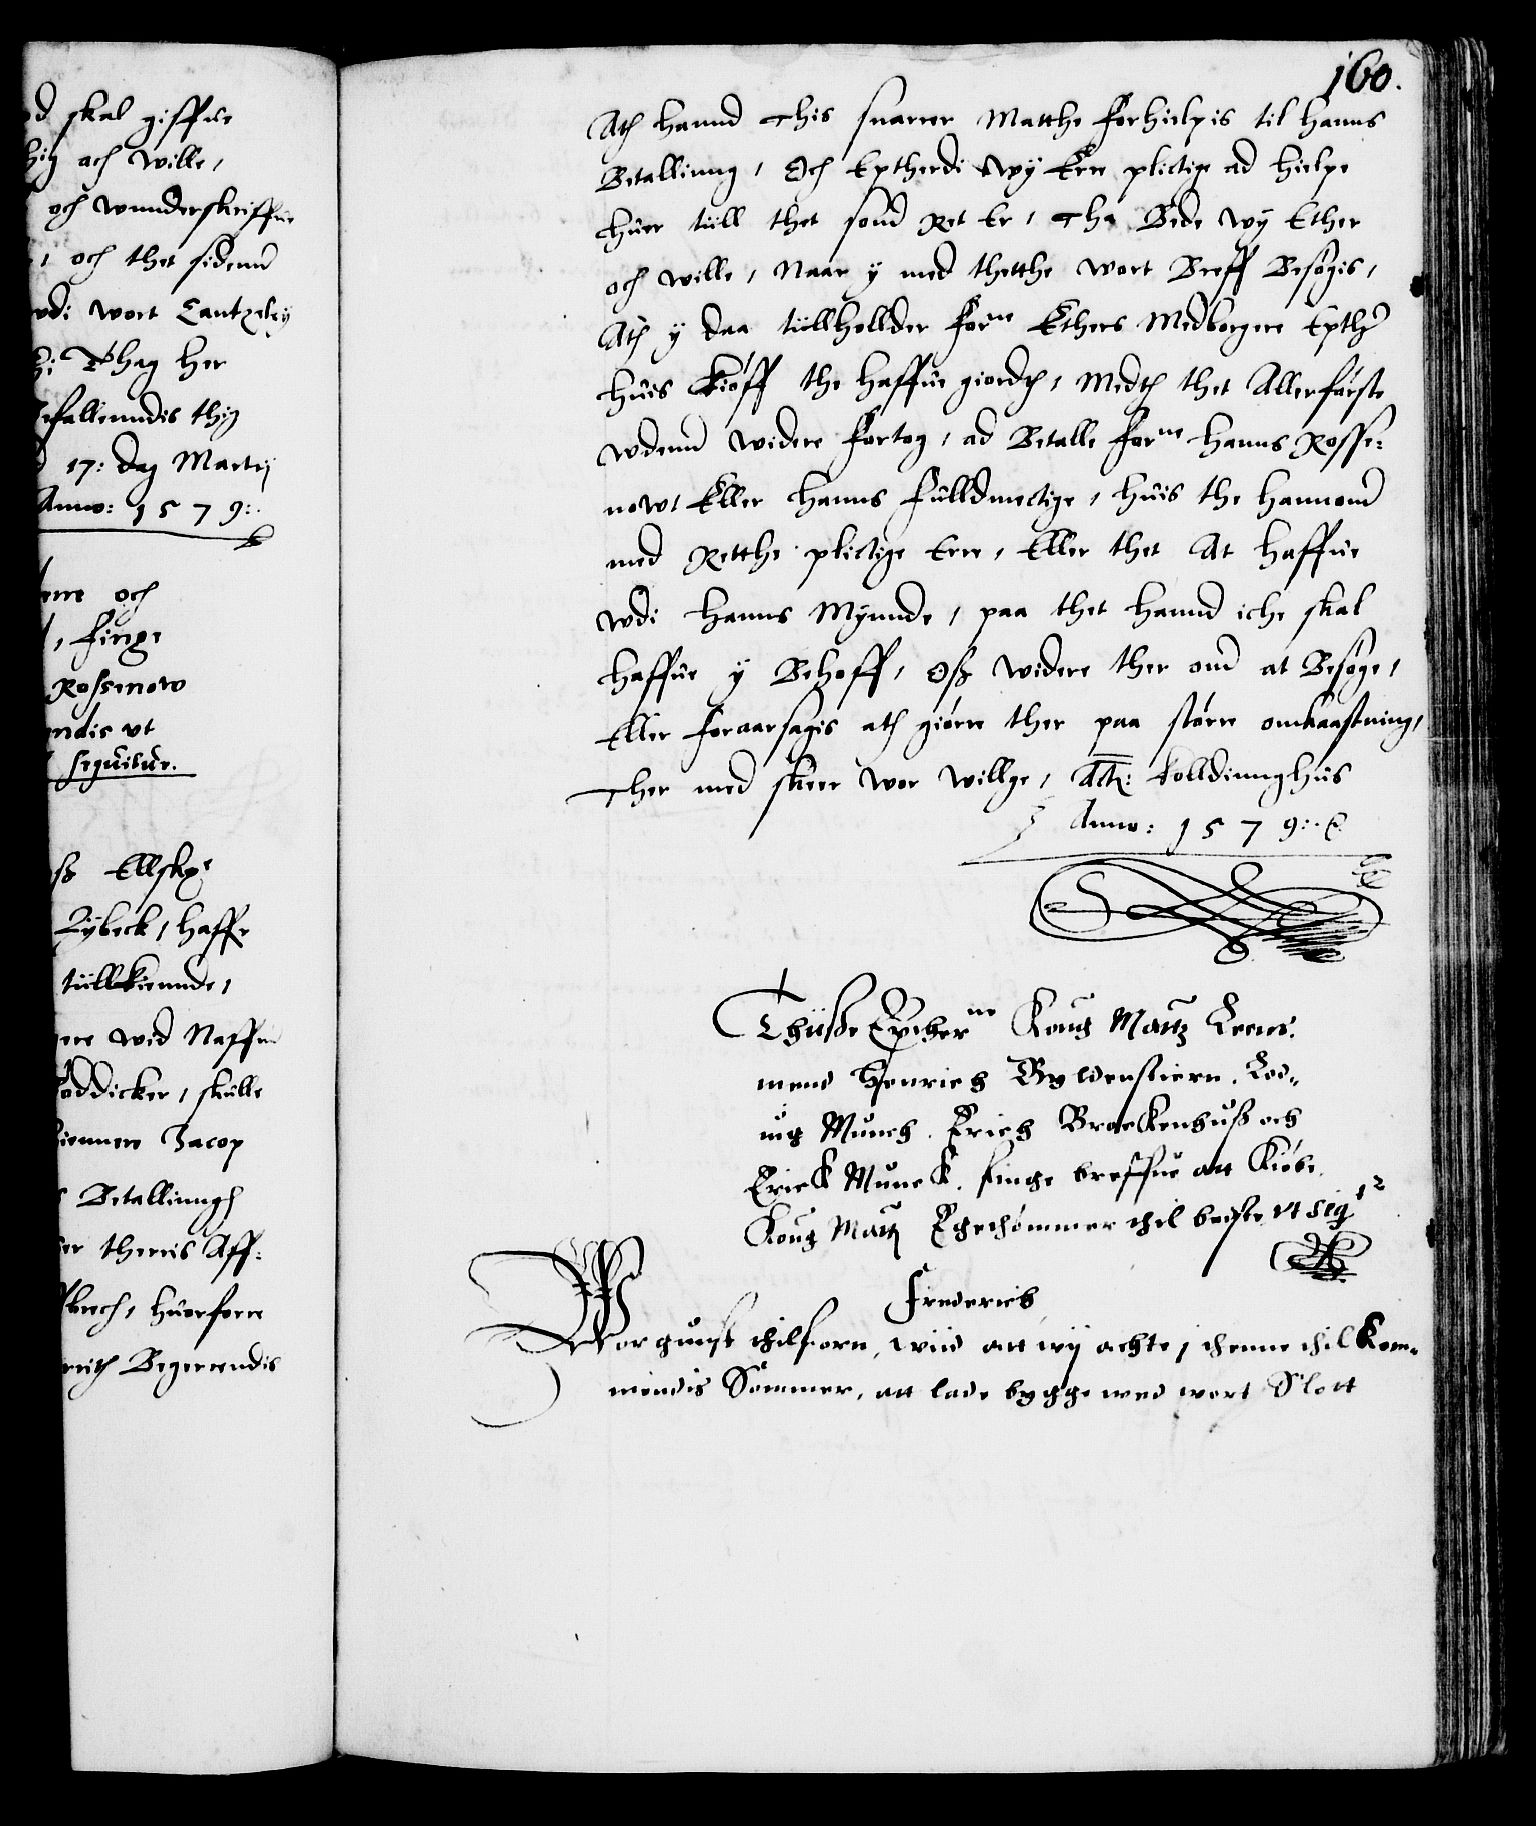 d skal giffue
hig och wille,
och wunderskriffue
, och thet sidenn
wdi wort Cantzeley
Thag her
efallenndis thig
17: dag Martij
Anno: 1579:
erre och
, finge
Rossenow
endis vt
sequitur.
ß Ellskt
Lybeck, haffr
tüllkiennde,
ere wid Naffn
oddicker, skulle
tiennere Jacop
Betallinngh
er therris Aff:
brech, huorforre
ith Begerendis
160.
Ath hannd This snarrer Matthe forhielpis til hanns
Betallinng, Och Eptherdi Wy Erre plictige ad hielpe
huer tiill thet sond Ret Er, Tha Bede wy Ether
och wille, Naar y med thetthe wort Breff Besøgis,
Ath y daa tiillhollder forne Ethers Medborgere Epthr
huis kiøff the haffue giordh, Medh thet Allerførste
wdenn widere fortog, ad Betalle forne hanns Rosse:
nowt Eller hanns fulldmectige, huis the hannom
med Retthe plictige Erre, Eller thet At haffue
wdi hanns Mynnde, paa thet hannd iche skal
haffue y Behoff, Oß widere ther om at Besøge,
Eller foraarsagis ath giørre ther paa større omkaastning,
Ther med skeer wor willge, Act: Kolldinnghus
Anno: 1579:
Thüsse Epther ne Kong Matz Leens.
mend Henrich Gyldenstiern. Lod,
uig Munch. Erich Brockenhuß och
Erick Munck. finge breffue att Kiøbe.
Kong Matz Egethømmer thil beste vt sig
Frederich
Wor gunst thilforn, wiid att wij achte, j thenne thil Kom,
mendis Sommer, att lade bygge wed wort Slott